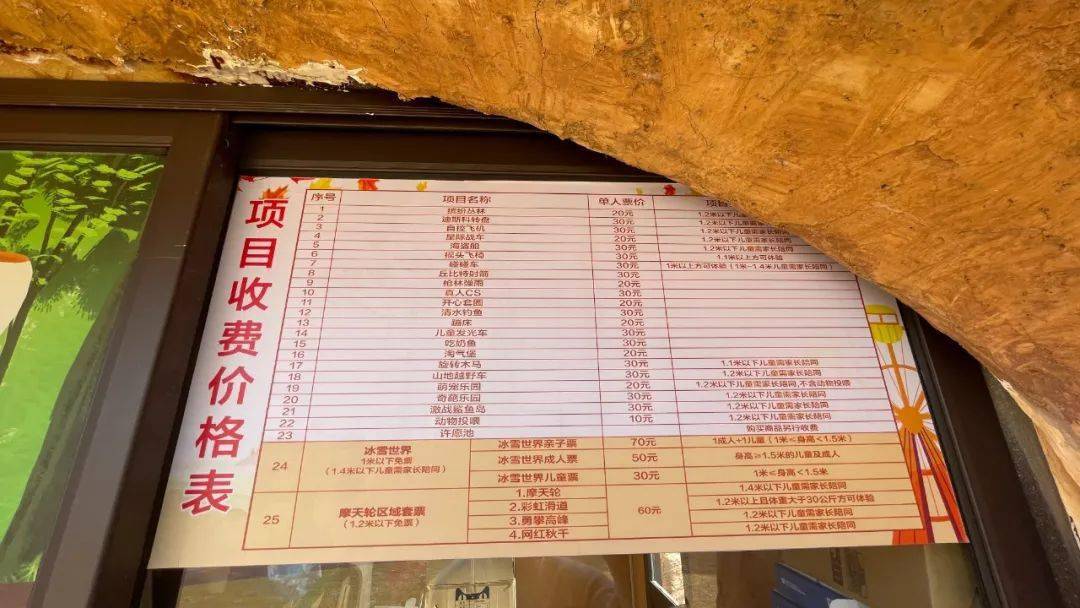 项目收费价格表
序号 项目名称 单人票价
1 缤纷丛林 20元 1.2米以下儿
2 迪斯科转盘 30元 1.2米以下儿童需家
3 自控飞机 30元 1.2米以下儿童需家长陪
4 星际战车 20元 1.2米以下儿童需家长陪同
5 海盗船 30元 1.2米以下儿童需家长陪同
6 摇头飞椅 30元 1.1米以上方可体验
7 碰碰车 30元 1米以上方可体验（1米-1.4米儿童需家长陪同）
8 丘比特射箭 30元
9 枪林弹雨 20元
10 真人CS 30元
11 开心套圈 20元
12 清水钓鱼 30元
13 蹦床 20元
14 儿童发光车 30元
15 吃奶鱼 30元
16 淘气堡 20元
17 旋转木马 30元 1.1米以下儿童需家长陪同
18 山地越野车 30元 1.2米以下儿童需家长陪同
19 萌宠乐园 20元 1.2米以下儿童需家长陪同,不含动物投喂
20 奇葩乐园 30元 1.2米以下儿童需家长陪同
21 激战鲨鱼岛 30元 1.2米以下儿童需家长陪同
22 动物投喂 10元 1.2米以下儿童需家长陪同
23 许愿池 购买商品另行收费
24 冰雪世界
1米以下免票
（1.4米以下儿童需家长陪同）
冰雪世界亲子票 70元 1成人+1儿童（1米≤身高<1.5米）
冰雪世界成人票 50元 身高≥1.5米的儿童及成人
冰雪世界儿童票 30元 1米≤身高<1.5米
25 摩天轮区域套票
（1.2米以下免票）
60元
1.摩天轮 1.4米以下儿童需家长陪同
2.彩虹滑道 1.2米以上且体重大于30公斤方可体验
3.勇攀高峰 1.2米以下儿童需家长陪同
4.网红秋千 1.2米以下儿童需家长陪同